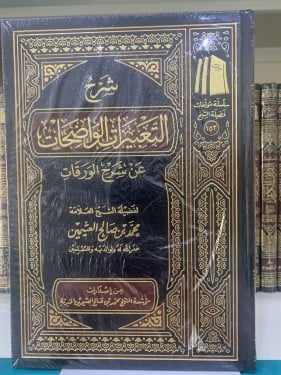 شرح
التعبيرات الواضحات
عن شرح الورقات
لفضيلة الشيخ العلامة
محمد بن صالح العثيمين
غفر الله له ولوالديه وللمسلمين
من إصدارات
مؤسسة الشيخ محمد بن صالح العثيمين الخيرية
سلسلة مؤلفات
فضيلة الشيخ
١٥٣